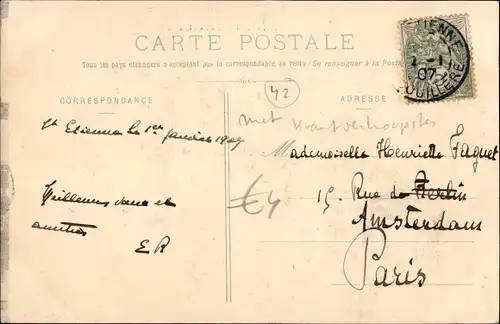 CARTE POSTALE
Tous les pays étrangers n'acceptent pas la correspondance au recto (Se renseigner à la Poste)
CORRESPONDANCE
42
ADRESSE
ETIENNE
2 -1
07
OUILLERE
met
St Etienne le 1er Janvier 1907
Mademoiselle Henriette Faguet
15. Rue de Berlin
Amsterdam
Paris
Meilleurs vœux et
amitiés
E R
€4